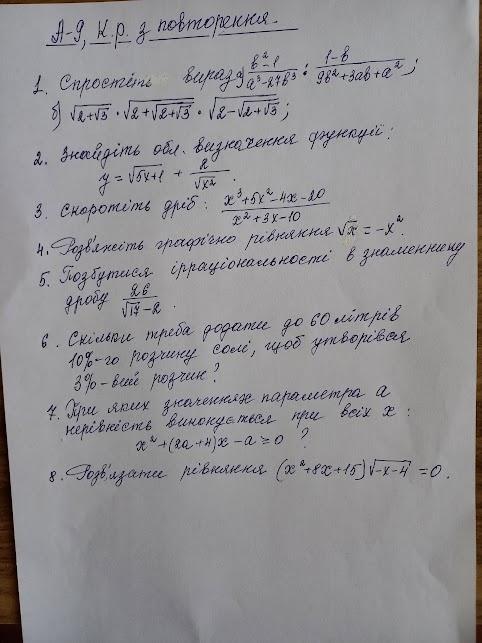 А-9, К.р. з повторення.
1. Спростіть вираз: а) (b²-1)/(a³-27b³) : (1-b)/(9b²+3ab+a²);
б) √(2+√3) · √(2+√(2+√3)) · √(2-√(2+√3));
2. Знайдіть обл. визначення функції:
y = √(5x+1) + 2/√(x²).
3. Скоротіть дріб: (x³+5x²-4x-20)/(x²+3x-10)
4. Розв'яжіть графічно рівняння √x = -x².
5. Позбутися ірраціональності в знаменнику
дробу 26/(√17-2).
6. Скільки треба додати до 60 літрів
10%-го розчину солі, щоб утворівся
3%-вий розчин?
7. При яких значеннях параметра a
нерівність виконується при всіх x:
x²+(2a+4)x-a≥0 ?
8. Розв'язати рівняння (x²+8x+15)√(-x-4) = 0.